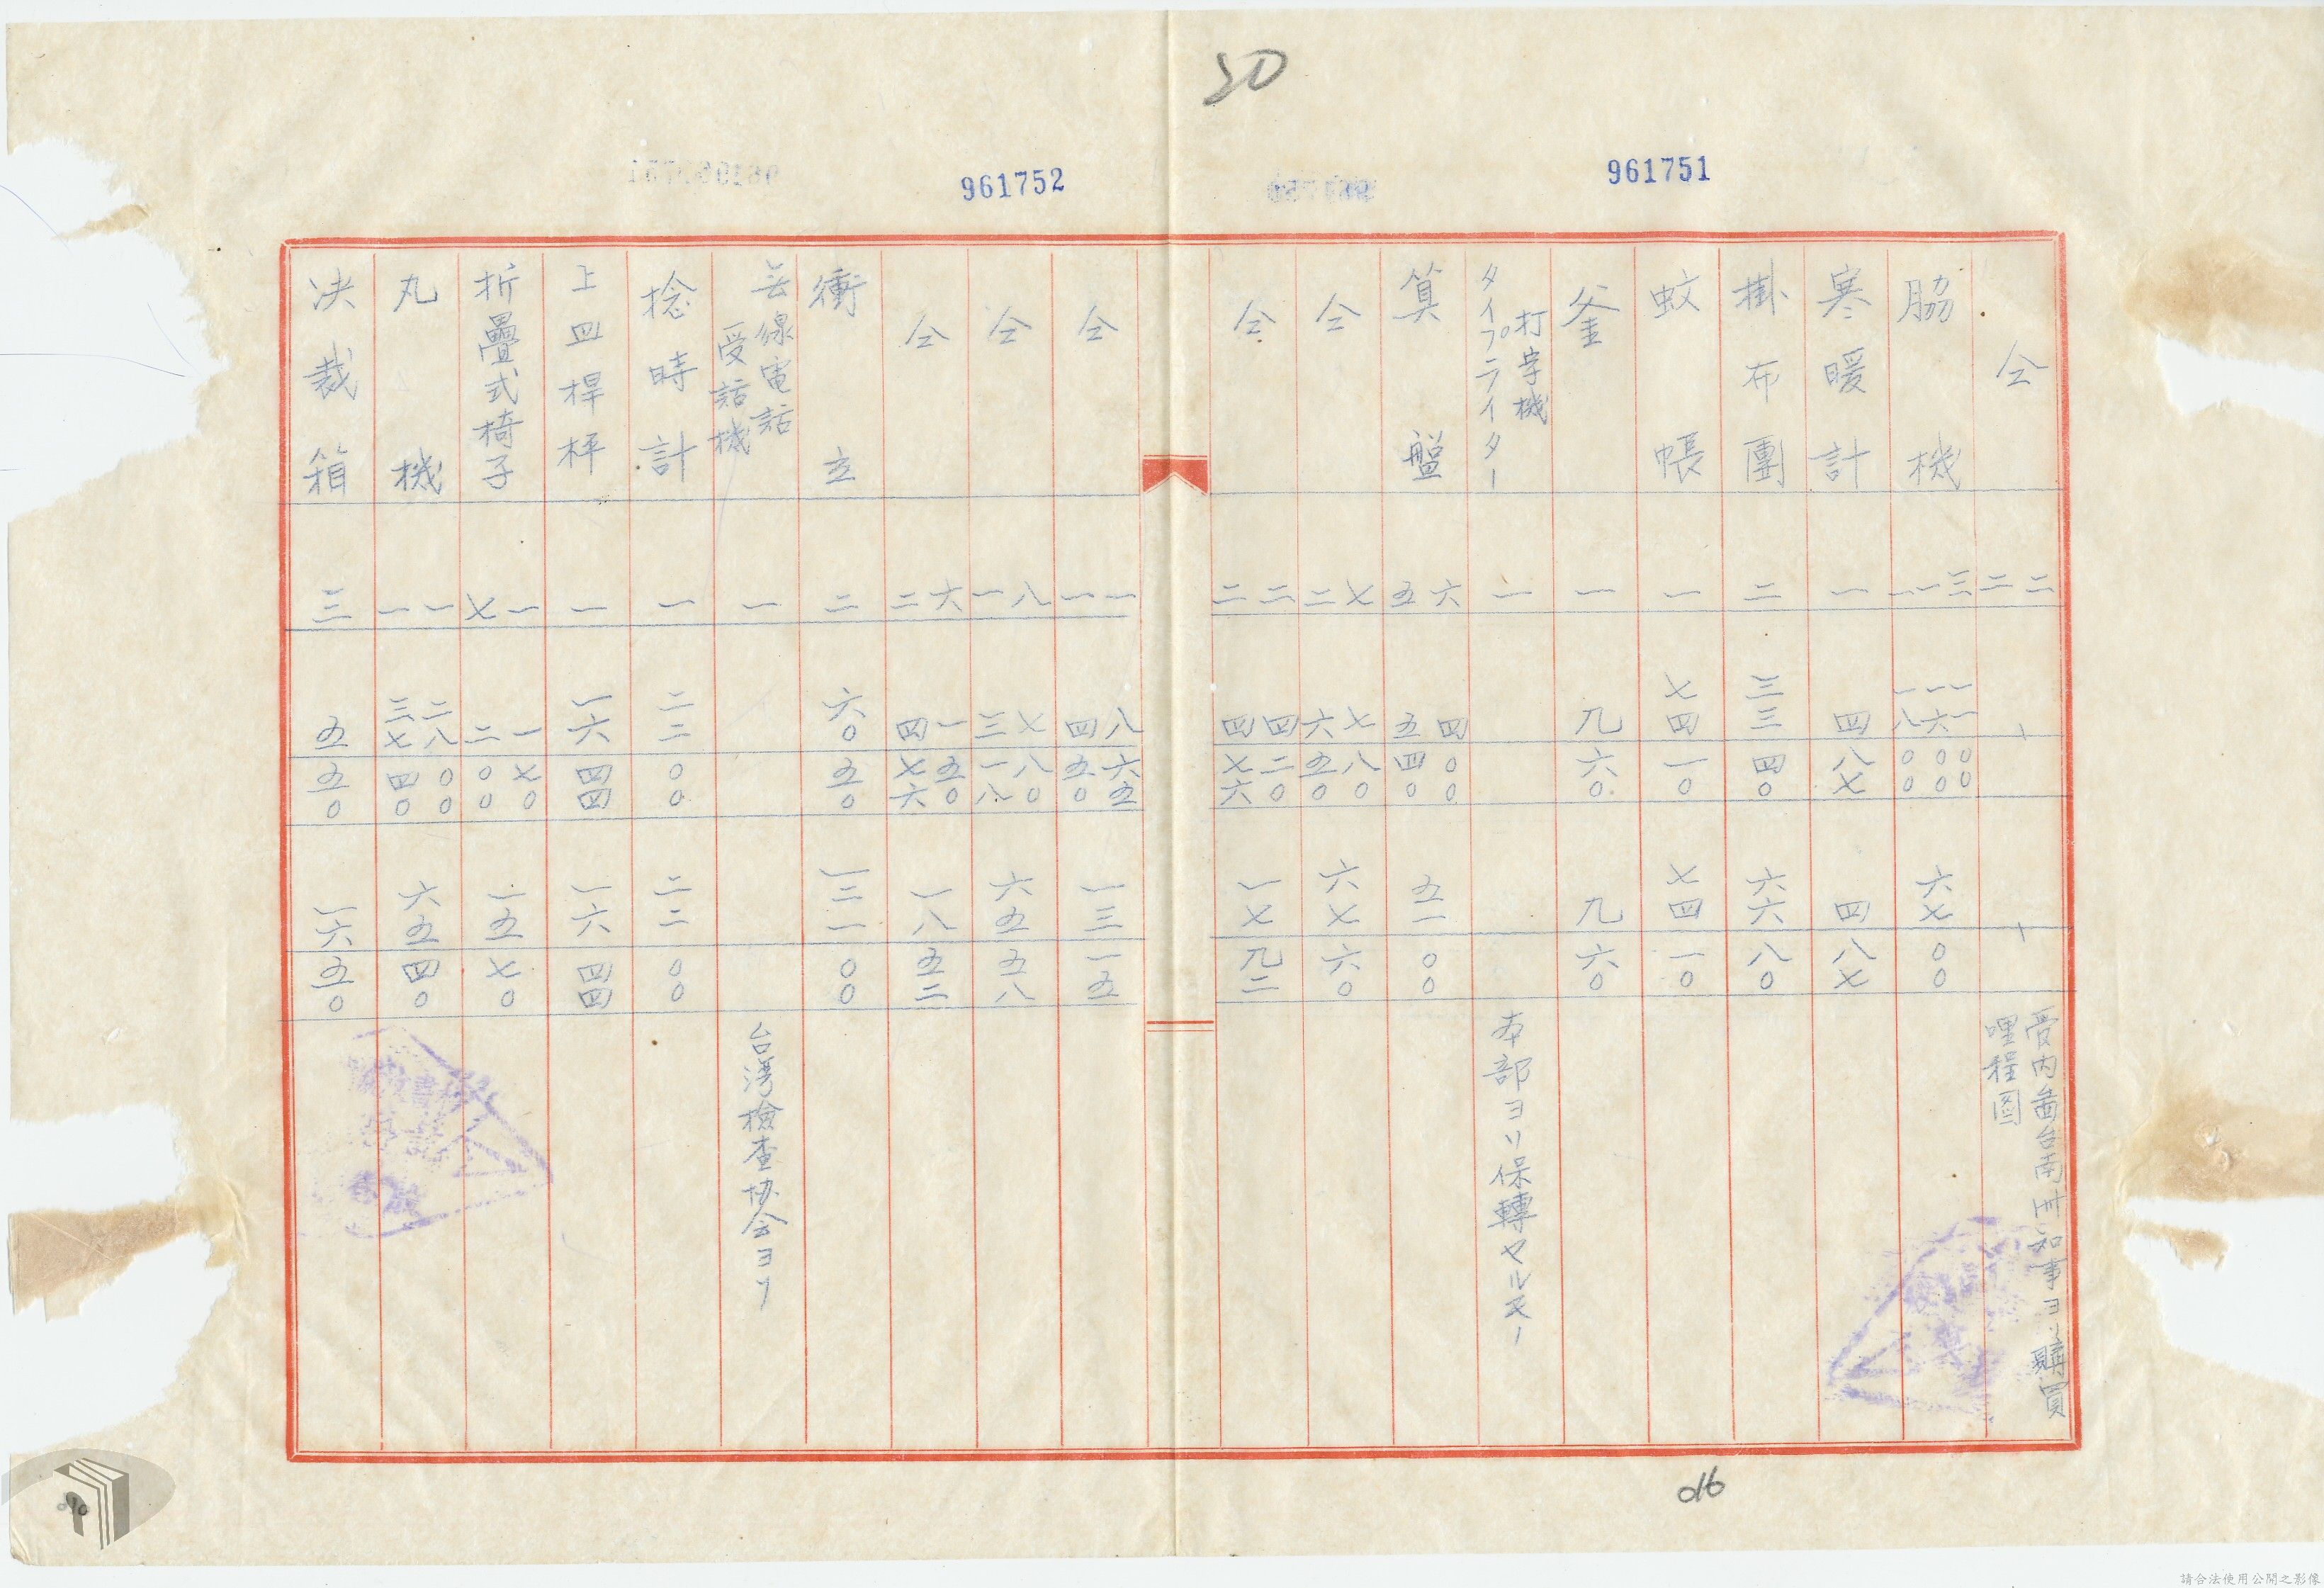 50
961751
961752
仝 二二 受内菌台南州知事ヨリ購買
哩程図
脇機 一一三 一八〇〇 一六〇〇 一一〇〇 六七〇〇
寒暖計 一 四八七 四八七
掛布團 二 三三四〇 六六八〇
蚊帳 一 七四一〇 七四一〇
釜 一 九六〇 九六〇
打字機
タイプライター 一 本部ヨリ保轉セルモノ
算盤 五六 五四〇 四〇〇 五一〇〇
仝 二七 六五〇 七八〇 六七六〇
仝 二二 四七六 四二〇 一七九二
仝 一一 四五〇 八六五 一三一五
仝 一八 三一八 七八〇 六五五八
仝 二六 四七六 一五〇 一八五二
衝立 二 六〇五〇 一二一〇〇
無線電話
受話機 一 台湾檢査協会ヨリ
捻時計 一 二二〇〇 二二〇〇
上皿桿秤 一 一六四四 一六四四
折疊式椅子 七一 二〇〇 一七〇 一五七〇
丸機 一一 三七四〇 二八〇〇 六五四〇
决裁箱 三 五五〇 一六五〇
016
請合法使用公開之影像